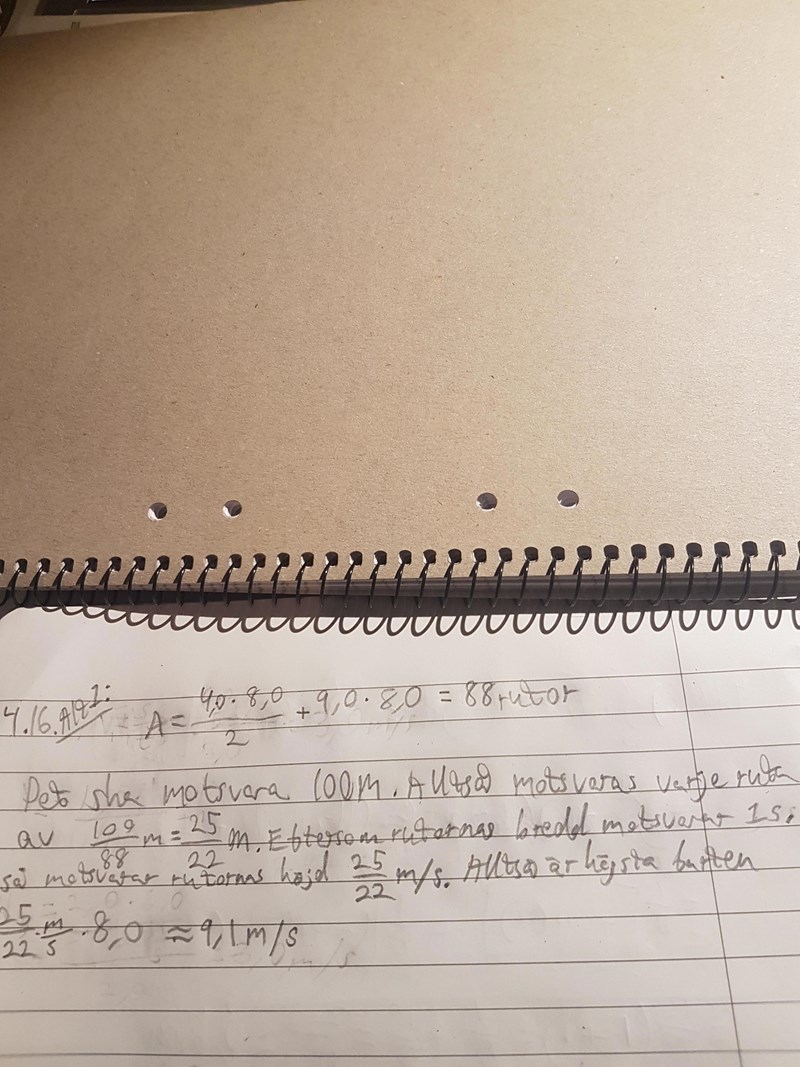 4.16. Alt 1: A = 4,0 · 8,0 / 2 + 9,0 · 8,0 = 88 rutor
Det ska motsvara 100m. Alltså motsvaras varje ruta
av 100/88 m = 25/22 m. Eftersom rutornas bredd motsvarar 1s,
så motsvarar rutornas höjd 25/22 m/s. Alltså är högsta farten
25/22 m/s · 8,0 ≈ 9,1 m/s